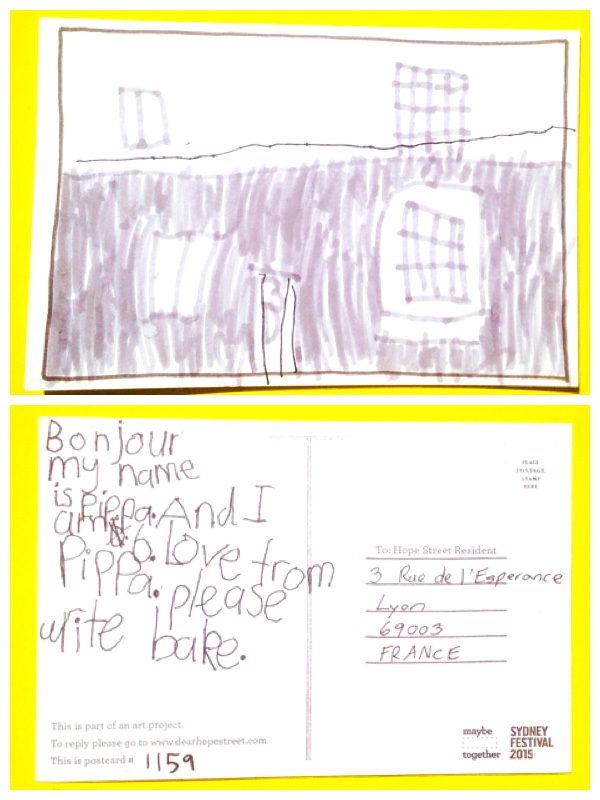 Bonjour
my name
is Pippa. And I
am 6. Love from
Pippa. please
write bake.
PLACE
POSTAGE
STAMP
HERE
To: Hope Street Resident
3 Rue de l'Esperance
Lyon
69003
FRANCE
This is part of an art project.
To reply please go to www.dearhopestreet.com
This is postcard # 1159
maybe
together
SYDNEY
FESTIVAL
2015